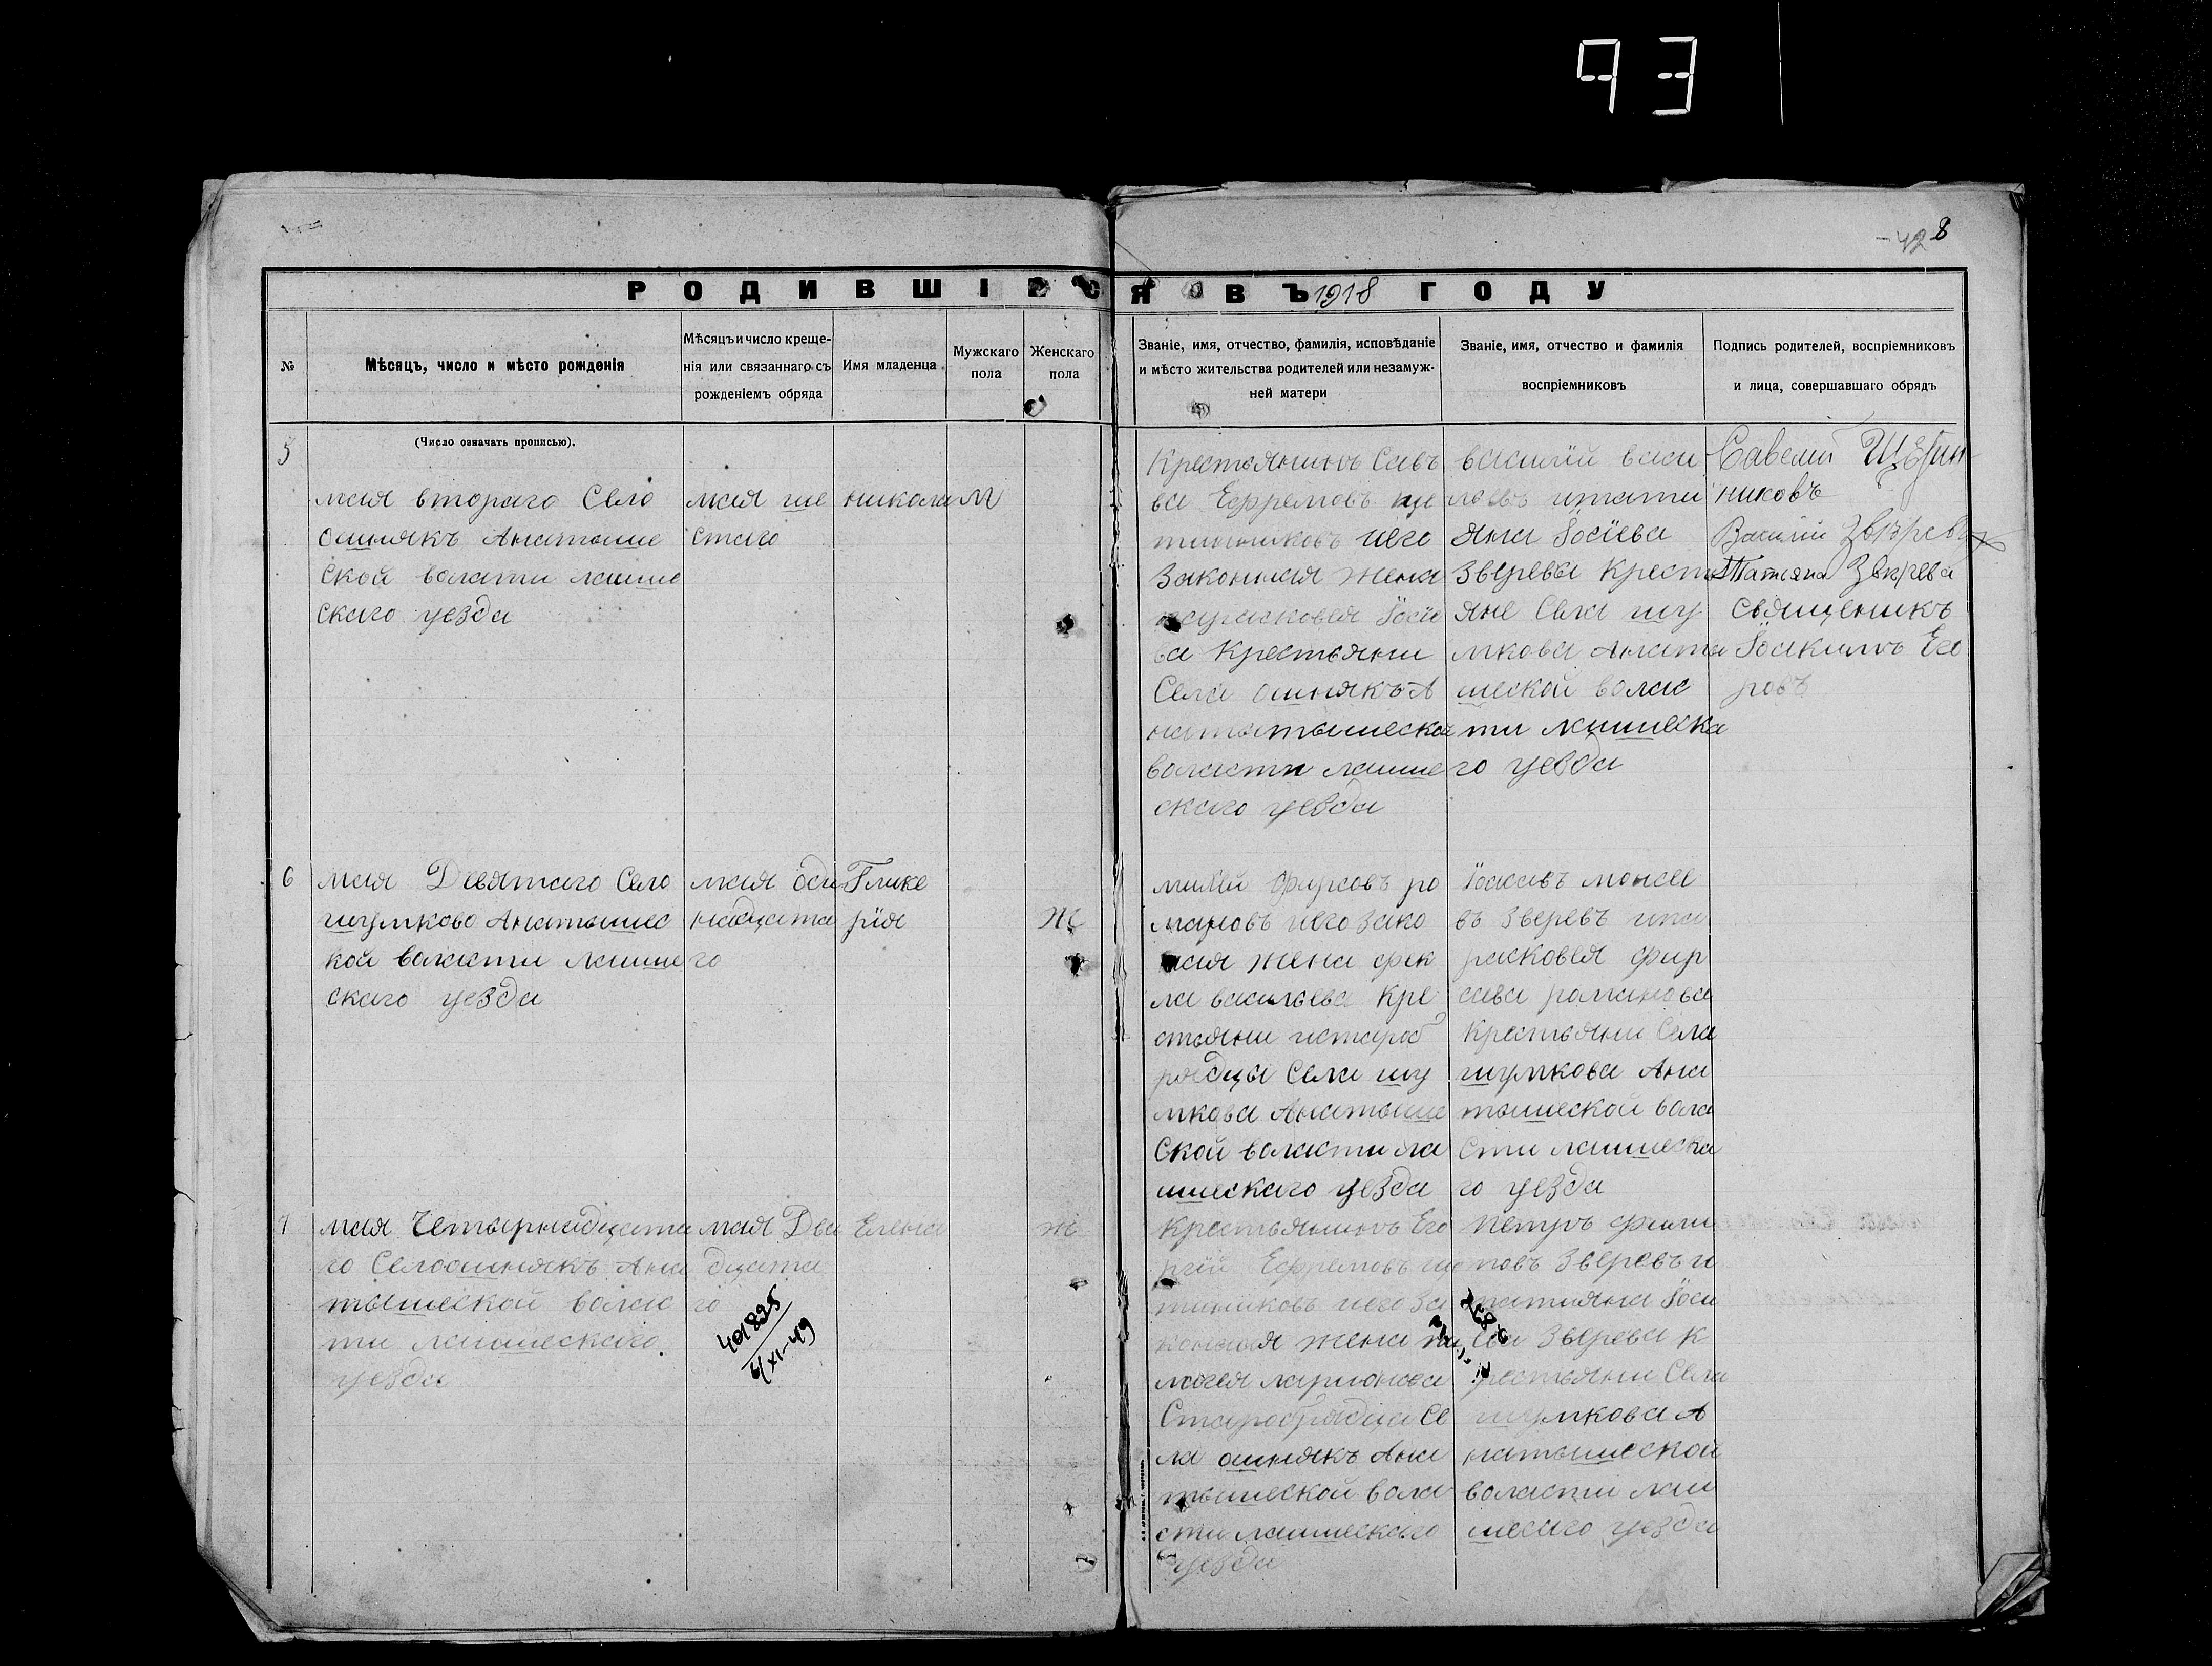 93
428
РОДИВШІЕСЯ ВЪ 1918 ГОДУ
№
Мѣсяцъ, число и мѣсто рожденія
Мѣсяцъ и число креще-
нія или связаннаго съ
рожденіемъ обряда
Имя младенца
Мужскаго
пола
Женскаго
пола
Званіе, имя, отчество, фамилія, исповѣданіе
и мѣсто жительства родителей или незамуж-
ней матери
Званіе, имя, отчество и фамилія
воспріемниковъ
Подпись родителей, воспріемниковъ
и лица, совершавшаго обрядъ
(Число означать прописью).
5
мая втораго Село
ошнякъ Анатыше
ской воласти лаише
скаго уезда
мая ше
стаго
никола
М
Крестьянинъ Савъ
ва Ефремовъ ще
тинниковъ иего
Законная жена
парасковея Іосіе
ва Крестьяни
Села ошнякъ А
натытышеска
воласти лаише
скаго уезда
василій васи
льевъ итати
яна Іосіева
Зверева Крестъ
яне Села шу
мкова Анаты
шеской волас
ти лаишеска
го уезда
Савелий Щетин-
никовъ
Василій Звѣревъ
Татиана Звѣрева
Священикъ
Іоакимъ Его
ровъ
6
мая Девятаго Село
шумково Анатышес
кой воласти лаише
скаго уезда
мая оди
надцата
го
Глике
рія
Ж
милій фирсовъ ро
мановъ иего зако
ная жена фек
ла васильева Кре
стьяни истароб
рядцы Села шу
мкова Анатыше
ской воласти ла
ишескаго уезда
Іоакавъ моисее
въ Зверевъ ипа
расковея фир
сава раманова
Крестьяни Села
шумкова Ана
тышеской вола
сти лаишеска
го уезда
7
мая Четырнадцата
го Селоошнякъ Ана
тышеской волас
ти лаишескаго
уезда
мая Два
дцата
го
401825
4/XI-49
Елена
Ж
Крестьянинъ Его
ргій Ефремовъ ще
тиниковъ иего За
конная жена пе
лагея ларионова
Старобрядца Се
ла ошнякъ Ана
тышеской вола
сти лаишескаго
уезда
Петръ фили
повъ Зверевъ и
татияна Іоси
ева Зверева К
рестьяни Села
шумкова А
натышеской
воласти лаи
шескаго уезда